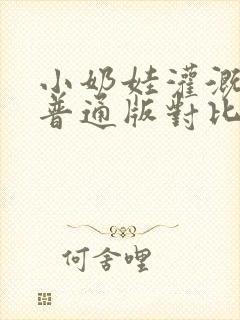 小奶娃灌溉
普通版對比
何舍哩